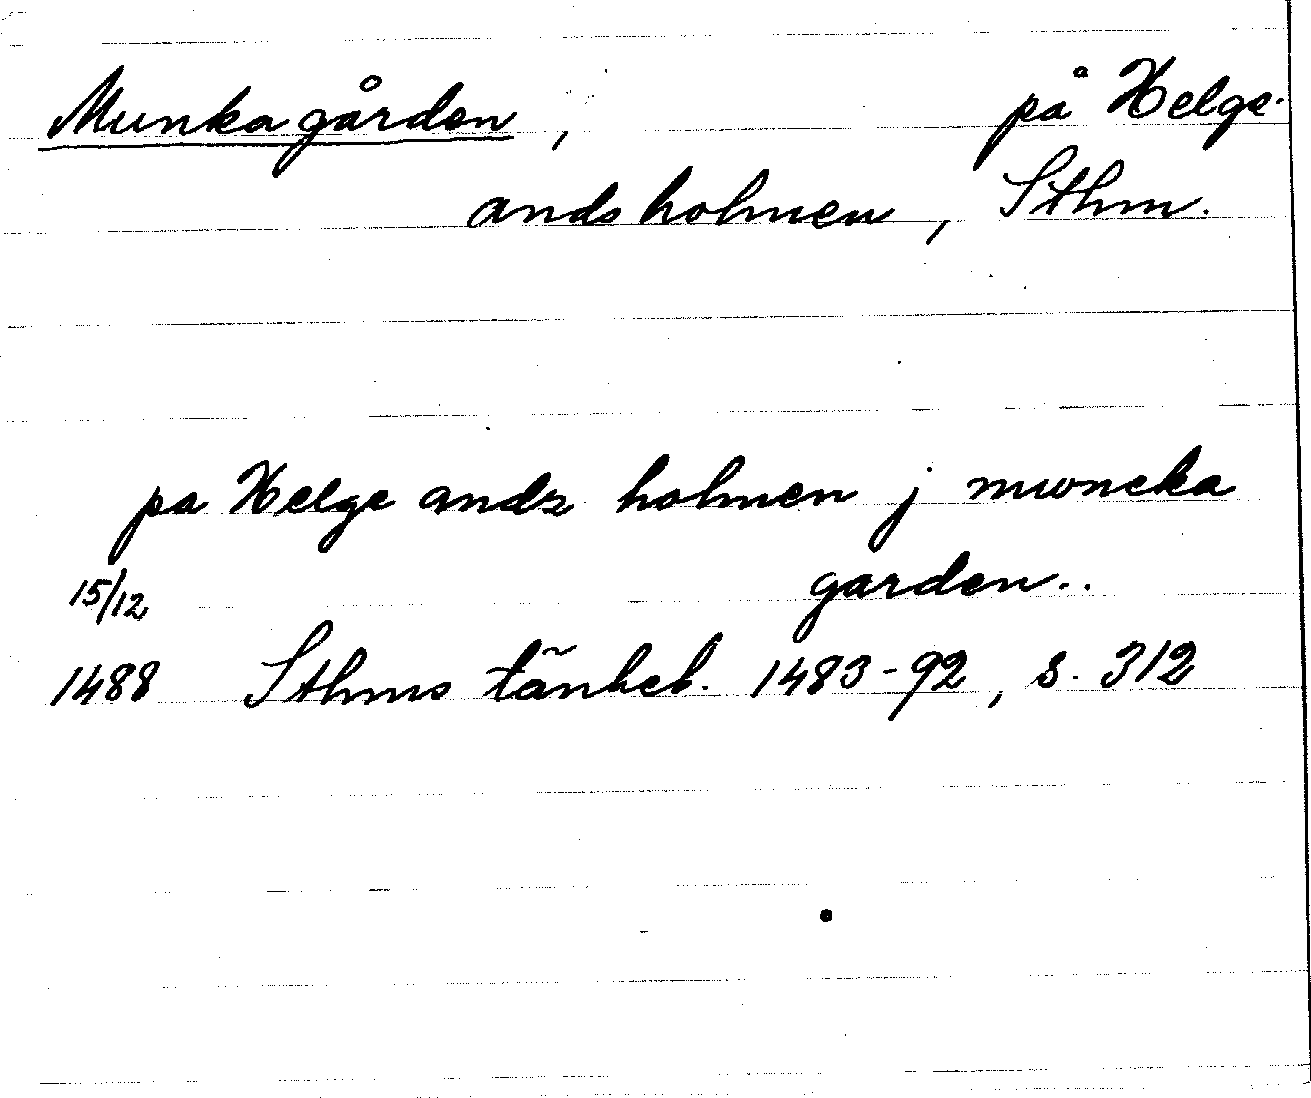 Munkagården, på Helge-
andsholmen, Sthm.
pa Helge andz holmen j mwncka
garden..
15/12
1488 Sthms tänkeb. 1483-92, s. 312